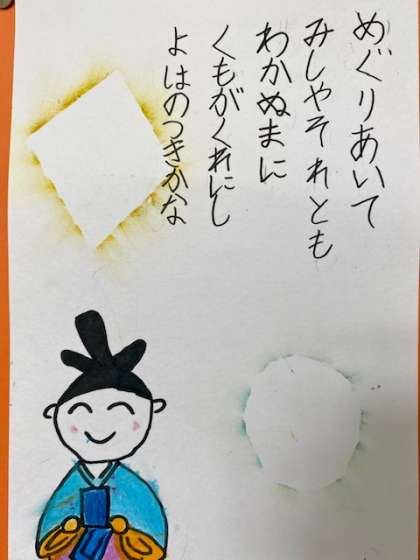 めぐりあいて
みしやそれとも
わかぬまに
くもがくれにし
よはのつきかな